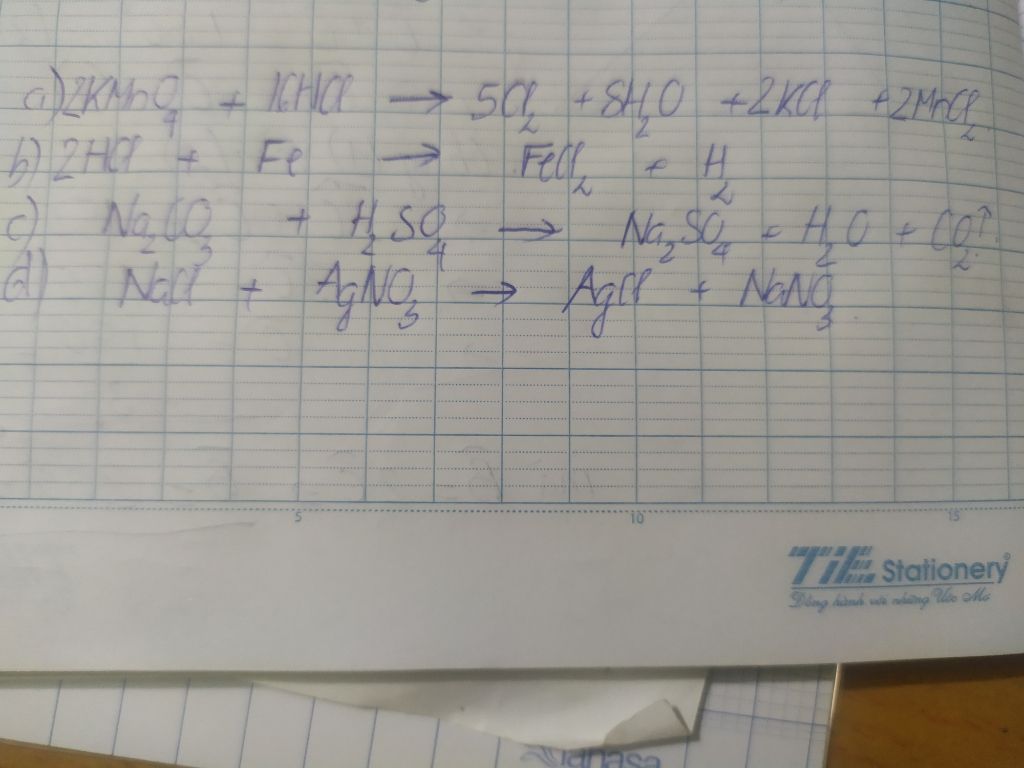 a) 2KMnO₄ + 16HCl → 5Cl₂ + 8H₂O + 2KCl + 2MnCl₂.
b) 2HCl + Fe → FeCl₂ + H₂
c) Na₂CO₃ + H₂SO₄ → Na₂SO₄ + H₂O + CO₂↑.
d) NaCl + AgNO₃ → AgCl + NaNO₃.
5 10 15
TiE Stationery®
Đồng hành với những Ước Mơ